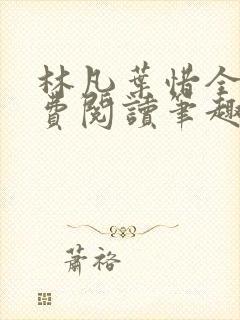 林凡葉惜全
費閱讀筆趣
蕭裕